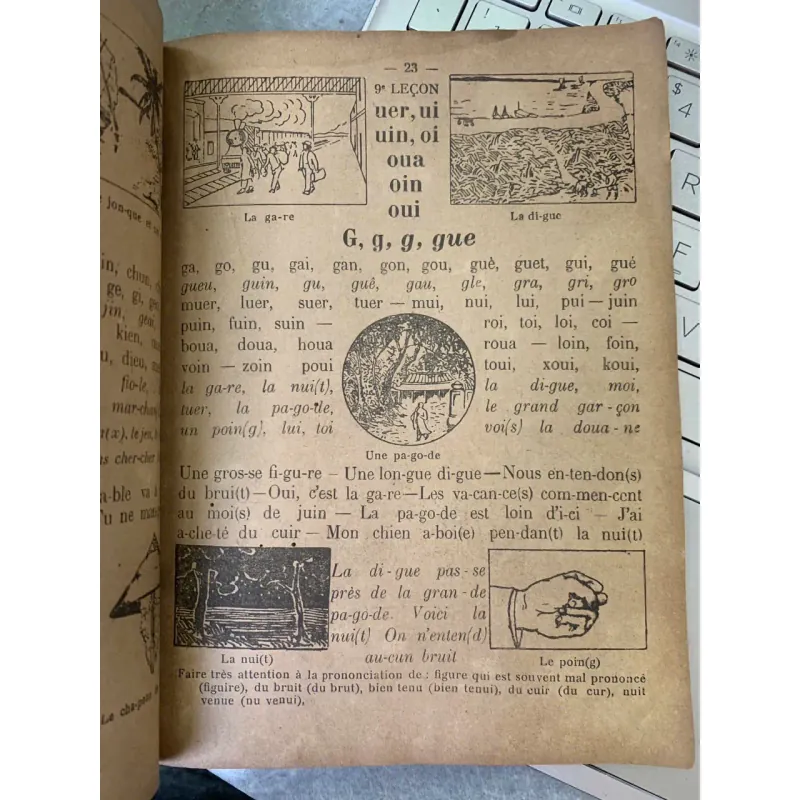 — 23 —
9e LEÇON
uer, ui
uin, oi
oua
oin
oui
La ga-re
La di-gue
G, g, g, gue
ga, go, gu, gai, gan, gon, gou, guè, guet, gui, gué
gueu, guin, gu, guê, gau, gle, gra, gri, gro
muer, luer, suer, tuer — mui, nui, lui, pui — juin
puin, fuin, suin — roi, toi, loi, coi —
boua, doua, houa roua — loin, foin,
voin — zoin poui toui, xoui, koui,
la ga-re, la nui(t), la di-gue, moi,
tuer, la pa-go-de, le grand gar-çon
un poin(g), lui, toi voi(s) la doua-ne
Une pa-go-de
Une gros-se fi-gu-re – Une lon-gue di-gue — Nous en-ten-don(s)
du brui(t) — Oui, c'est la ga-re — Les va-can-ce(s) com-men-cent
au moi(s) de juin — La pa-go-de est loin d'i-ci — J'ai
a-che-té du cuir — Mon chien a-boi(e) pen-dan(t) la nui(t)
La di-gue pas-se
près de la gran-de
pa-go-de. Voici la
nui(t) On n'enten(d)
au-cun bruit
La nui(t)
Le poin(g)
Faire très attention à la prononciation de : figure qui est souvent mal prononcé
(figuire), du bruit (du brut), bien tenu (bien tenui), du cuir (du cur), nuit
venue (nu venui),
jon-que et
in, chun,
ge, gi,
jin, geai,
kien,
dieu,
fio-le,
mar-chan
(x), le jeu,
cher-cher
a-ble va à
Tu ne
Le cha-peau